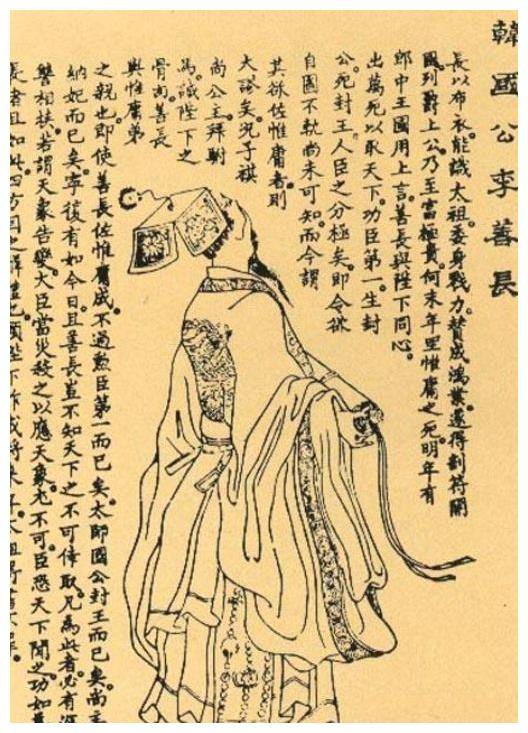 韓國公李善長
長以布衣。能識太祖。委身戮力。贊成鴻業。遂得剖符開
國。列爵上公。乃至富極貴。何末年里惟庸之死。明年有
郎中王國用上言。善長與陛下同心。
出萬死以取天下。功臣第一。生封
公。死封王。人臣之分極矣。即令欲
自圖不軌。尚未可知。而今謂
其欲佐惟庸者。則
大謬矣。況子祺
尚公主。拜駙
馬。誠陛下之
骨肉。善長
與惟庸。弟
之親也。即使善長佐惟庸成。不過勲臣第一而已矣。太師國公封王而已矣。尚主
納妃而已矣。寧復有如今日。且善長豈不知天下之不可倖取。况為此者。必有深
讐相挾。若謂天象告變。大臣當災。殺之以應天象。尤不可。臣恐天下聞之。功如
長者且如此。四方因之解體